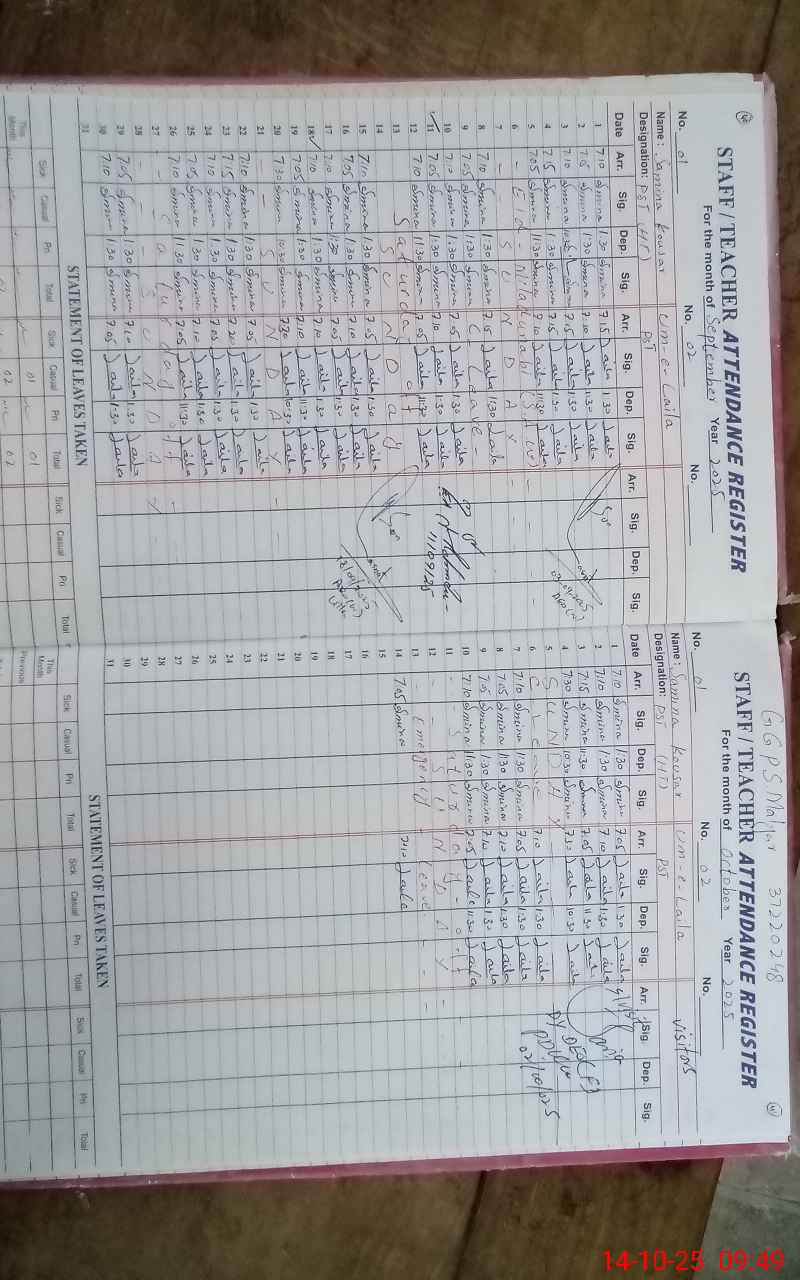 STAFF / TEACHER ATTENDANCE REGISTER
For the month of September Year 2025
No. 01 No. 02 No.
Name: Samina Kousar Um-e-Laila
Designation: PST (HT) PST
Date Arr. Sig. Dep. Sig. Arr. Sig. Dep. Sig. Arr. Sig. Dep. Sig.
1 7:10 Smina 1:30 Smina 7:15 Laila 1:30 Laila
2 7:05 Smina 1:30 Smina 7:10 Laila 1:30 Laila
3 7:10 Smina Smina 7:05 Laila 1:30 Laila
4 7:15 Smina 1:30 Smina 7:15 Laila 1:30 Laila
5 7:05 Smina 11:30 Smina 7:10 Laila 11:30 Laila
6 - Eid-Miladunabi
7 - - S U N D A Y - - - -
8 7:10 Smina 1:30 Smina 7:15 Laila 1:30 Laila
9 7:05 Smina 1:30 Smina - Leave -
10 7:10 Smina 1:30 Smina 7:05 Laila 1:30 Laila
11 7:05 Smina 1:30 Smina 7:10 Laila 1:30 Laila
12 7:10 Smina 11:30 Smina 7:05 Laila 11:30 Laila
13 Saturday off
14 S U N D a y
15 7:10 Smina 1:30 Smina 7:05 Laila 1:30 Laila
16 7:05 Smina 1:30 Smina 7:10 Laila 1:30 Laila
17 7:10 Smina 1:30 Smina 7:05 Laila 1:30 Laila
18 7:10 Smina 1:30 Smina 7:10 Laila 1:30 Laila
19 7:05 Smina 1:30 Smina 7:10 Laila 1:30 Laila
20 7:30 Smina 10:30 Smina 7:30 Laila 10:30 Laila
21 - - S U N D A Y -
22 7:10 Smina 1:30 Smina 7:05 Laila 1:30 Laila
23 7:15 Smina 1:30 Smina 7:20 Laila 1:30 Laila
24 7:10 Smina 1:30 Smina 7:05 Laila 1:30 Laila
25 7:05 Smina 1:30 Smina 7:10 Laila 1:30 Laila
26 7:10 Smina 11:30 Smina 7:05 Laila 11:30 Laila
27 - - Saturday off -
28 - - S U N D A Y
29 7:05 Smina 1:30 Smina 7:10 Laila 1:30 Laila
30 7:10 Smina 1:30 Smina 7:05 Laila 1:30 Laila
31
11/09/25
STATEMENT OF LEAVES TAKEN
Sick Casual Pri Total Sick Casual Pri Total Sick Casual Pri Total
This Month 01 01
02 02
GGPS Malyar 37220248
STAFF / TEACHER ATTENDANCE REGISTER
For the month of October Year 2025
No. 01 No. 02 No.
Name: Samina Kousar Um-e-Laila Visitors
Designation: PST (HT) PST
Date Arr. Sig. Dep. Sig. Arr. Sig. Dep. Sig. Arr. Sig. Dep. Sig.
1 7:10 Smina 1:30 Smina 7:05 Laila 1:30 Laila
2 7:10 Smina 1:30 Smina 7:10 Laila 1:30 Laila
3 7:15 Smina 11:30 Smina 7:05 Laila 11:30 Laila
4 7:30 Smina 10:30 Smina 7:30 Laila 10:30 Laila
5 S U N D A Y
6 - Leave - 7:10 Laila 1:30 Laila
7 7:10 Smina 1:30 Smina 7:05 Laila 1:30 Laila
8 7:05 Smina 1:30 Smina 7:10 Laila 1:30 Laila
9 7:05 Smina 1:30 Smina 7:10 Laila 1:30 Laila
10 7:10 Smina 11:30 Smina 7:05 Laila 11:30 Laila
11 - - Saturday - off
12 - - S U N D A Y -
13 - Emergency Leave -
14 7:05 Smina 7:10 Laila
15
16
17
18
19
20
21
22
23
24
25
26
27
28
29
30
31
DY DEO(F)
02/10/025
STATEMENT OF LEAVES TAKEN
Sick Casual Pri Total Sick Casual Pri Total Sick Casual Pri Total
This Month
Previous
14-10-25 09:49